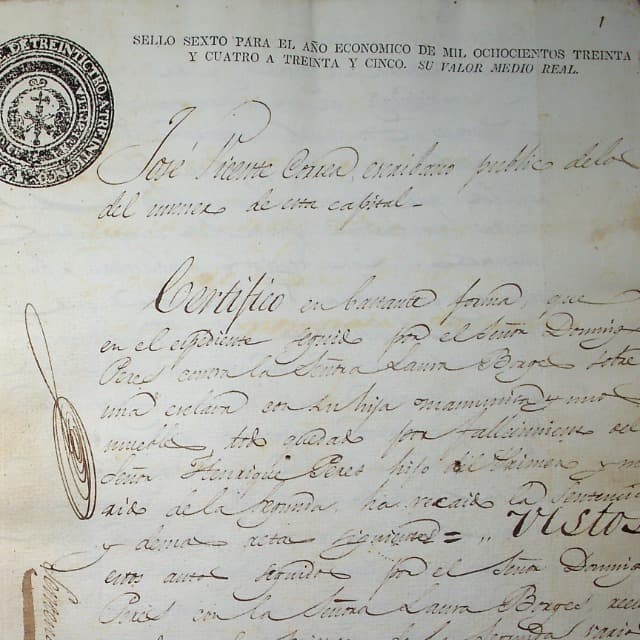 1
SELLO SEXTO PARA EL AÑO ECONOMICO DE MIL OCHOCIENTOS TREINTA
Y CUATRO A TREINTA Y CINCO. SU VALOR MEDIO REAL.
José Vicente Correa, escribano public de los
del numer de esta capital
Certifico en bastante forma, que
en el espediente seguid por el Señor Doming
Peres contra la Señora Laura Borges sobre
una esclava con su hija manumisa y
mueble, qued por fallecimiento del
Señor Henrique Peres hijo del primero y
de la segunda, ha recaid la sentencia
y demas siguientes = Vistos
estos autos seguid por el Señor Doming
Peres con la Señora Laura Borges,
de la segunda